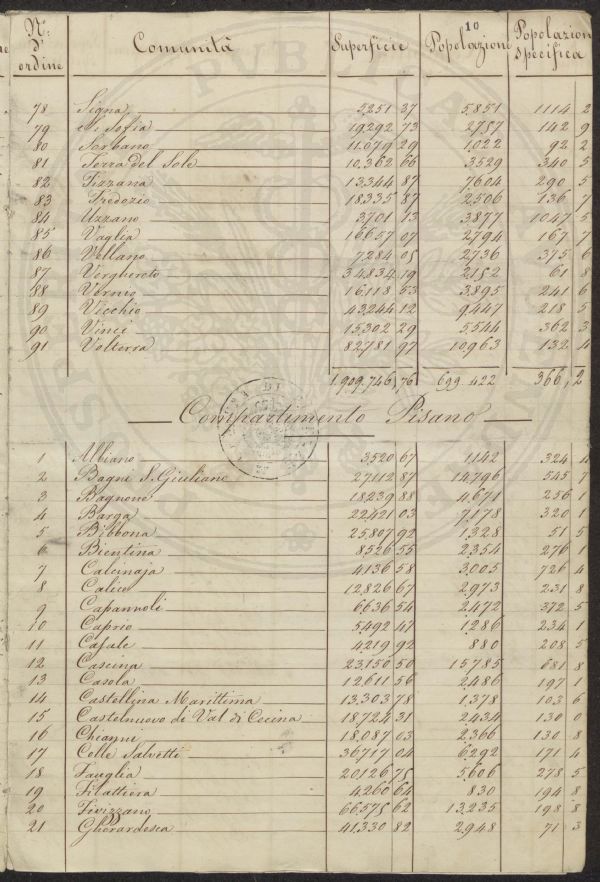 10
N.º d' ordine Comunità Superficie Popolazione Popolazion specifica
78 Signa 5251 37 5851 1114 2
79 S. Sofia 19292 73 2757 142 9
80 Sorbano 11079 29 1022 92 2
81 Terra del Sole 10,362 66 3529 340 5
82 Tizzana 13344 87 7604 290 5
83 Tredozio 18335 87 2506 136 7
84 Uzzano 3701 13 3877 1047 5
85 Vaglia 16657 07 2794 167 7
86 Vellano 7284 05 2736 375 6
87 Verghereto 34834 19 2152 61 8
88 Vernio 16118 53 3895 241 6
89 Vicchio 43244 12 9447 218 5
90 Vinci 15302 29 5544 362 3
91 Volterra 82781 97 10,963 132 4
1.909,746,76 699.422 366,2
Compartimento Pisano
1 Albiano 3520 67 1142 324 4
2 Bagni S. Giuliano 27112 87 14796 545 7
3 Bagnone 18239 88 4671 256 1
4 Barga 22421 03 7178 320 1
5 Bibbona 25807 92 1328 51 5
6 Bientina 8526 55 2354 276 1
7 Calcinaja 4136 58 3005 726 4
8 Calice 12826 67 2973 231 8
9 Capannoli 6636 54 2472 372 5
10 Caprio 5492 47 1286 234 1
11 Casale 4219 92 880 208 5
12 Cascina 23150 50 15785 681 8
13 Casola 12611 56 2486 197 1
14 Castellina Marittima 13303 78 1378 103 6
15 Castelnuovo di Val di Cecina 18724 31 2434 130 0
16 Chianni 18087 03 2366 130 8
17 Colle Salvetti 36717 04 6292 171 4
18 Fauglia 20126 75 5606 278 5
19 Filattiera 4260 64 830 194 8
20 Fivizzano 66575 62 13235 198 8
21 Gherardesca 41,330 82 2948 71 3